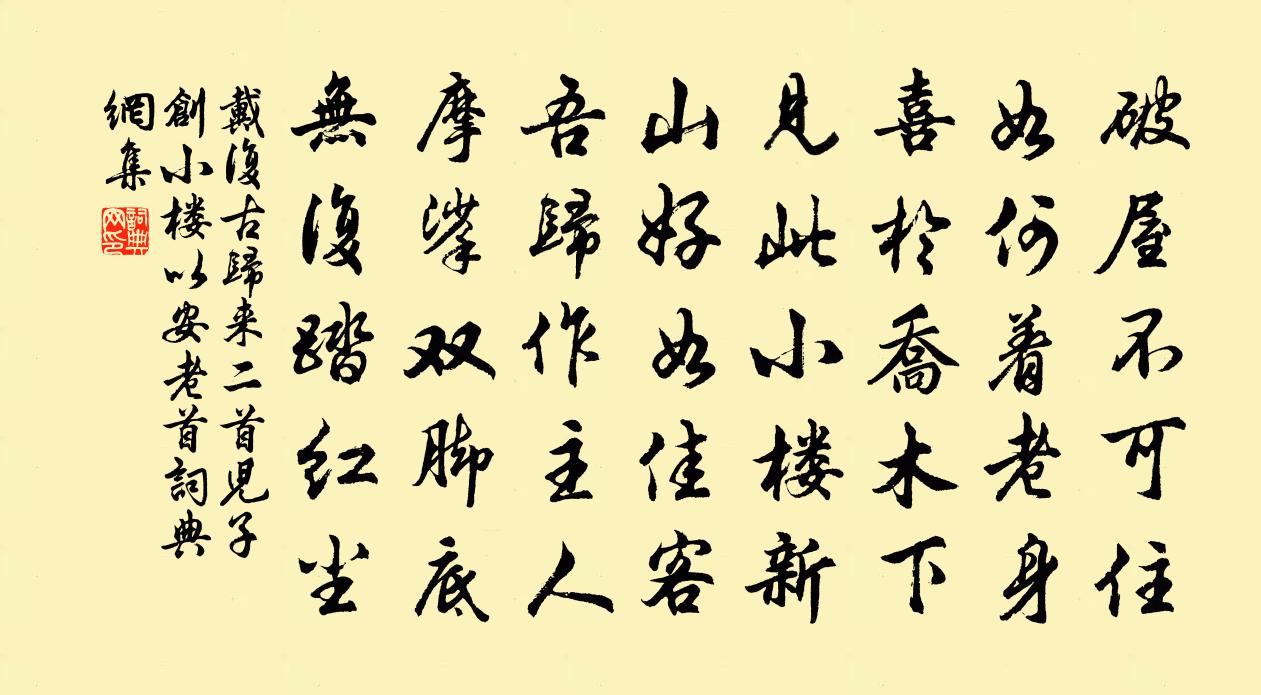 破屋不可住
如何着老身
喜於喬木下
見此小楼新
山好如佳客
吾歸作主人
摩挲双脚底
無復踏红尘
戴復古歸来二首児子
創小楼以安老首詞典
網集
詞典
网印